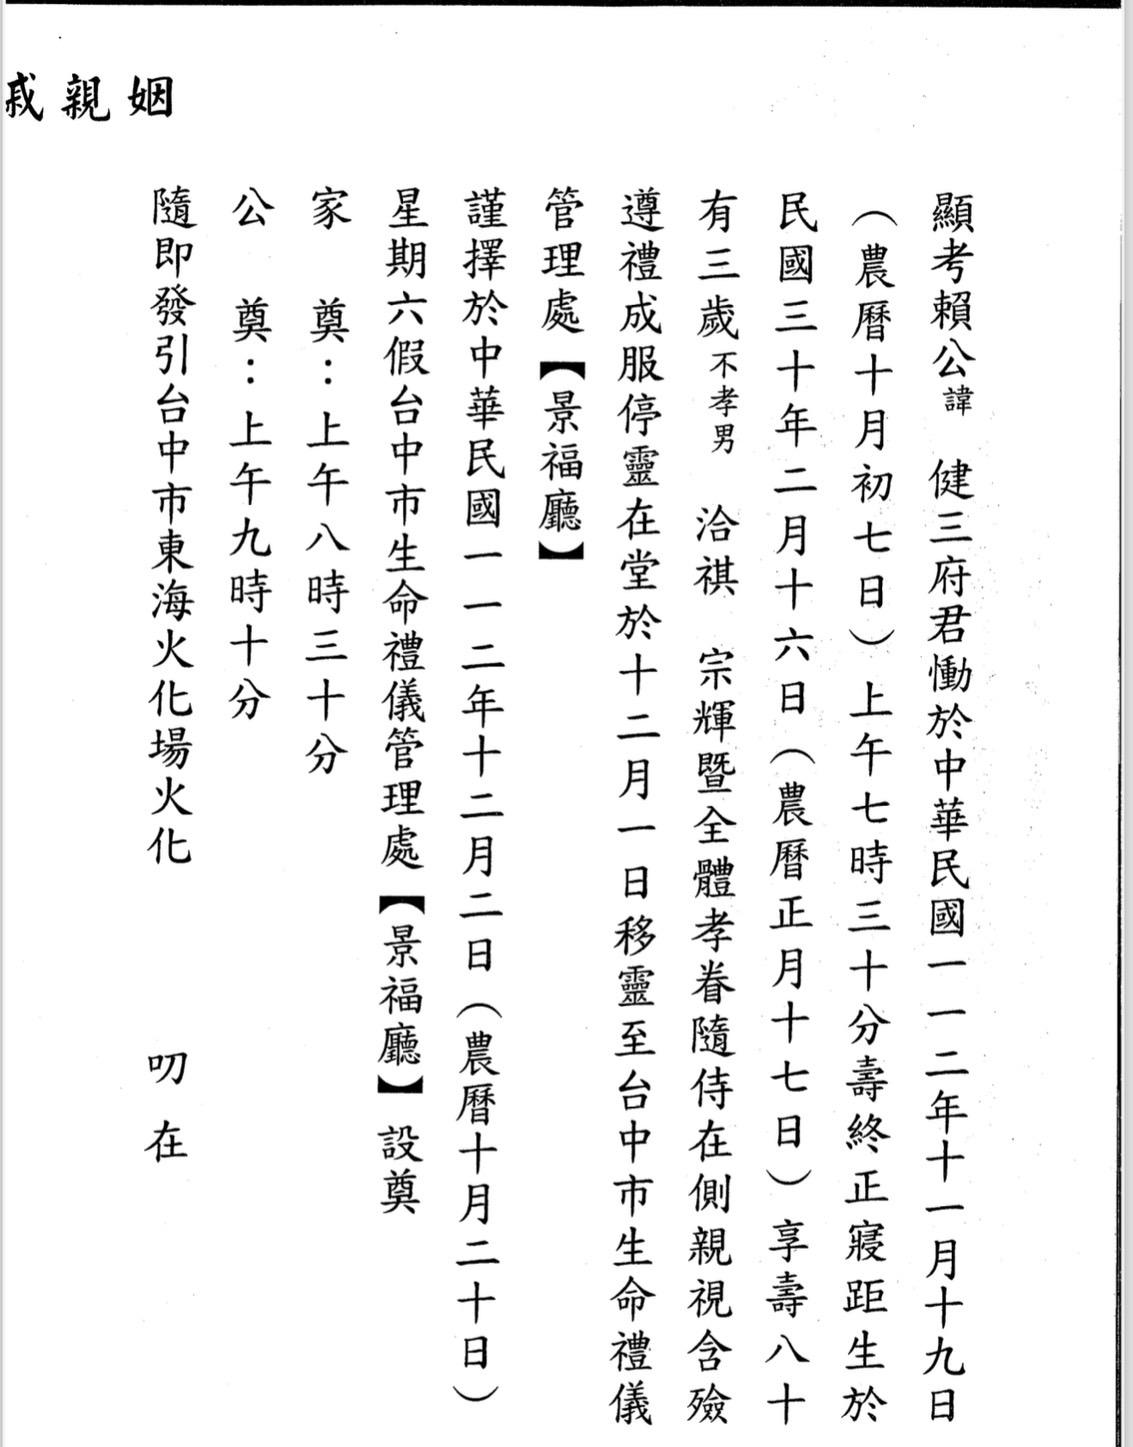 顯考賴公諱　健三府君慟於中華民國一一二年十一月十九日
（農曆十月初七日）上午七時三十分壽終正寢距生於
民國三十年二月十六日（農曆正月十七日）享壽八十
有三歲不孝男　洽祺　宗輝暨全體孝眷隨侍在側親視含殮
遵禮成服停靈在堂於十二月一日移靈至台中市生命禮儀
管理處【景福廳】
謹擇於中華民國一一二年十二月二日（農曆十月二十日）
星期六假台中市生命禮儀管理處【景福廳】設奠
家　奠：上午八時三十分
公　奠：上午九時十分
隨即發引台中市東海火化場火化　叨在
姻親戚